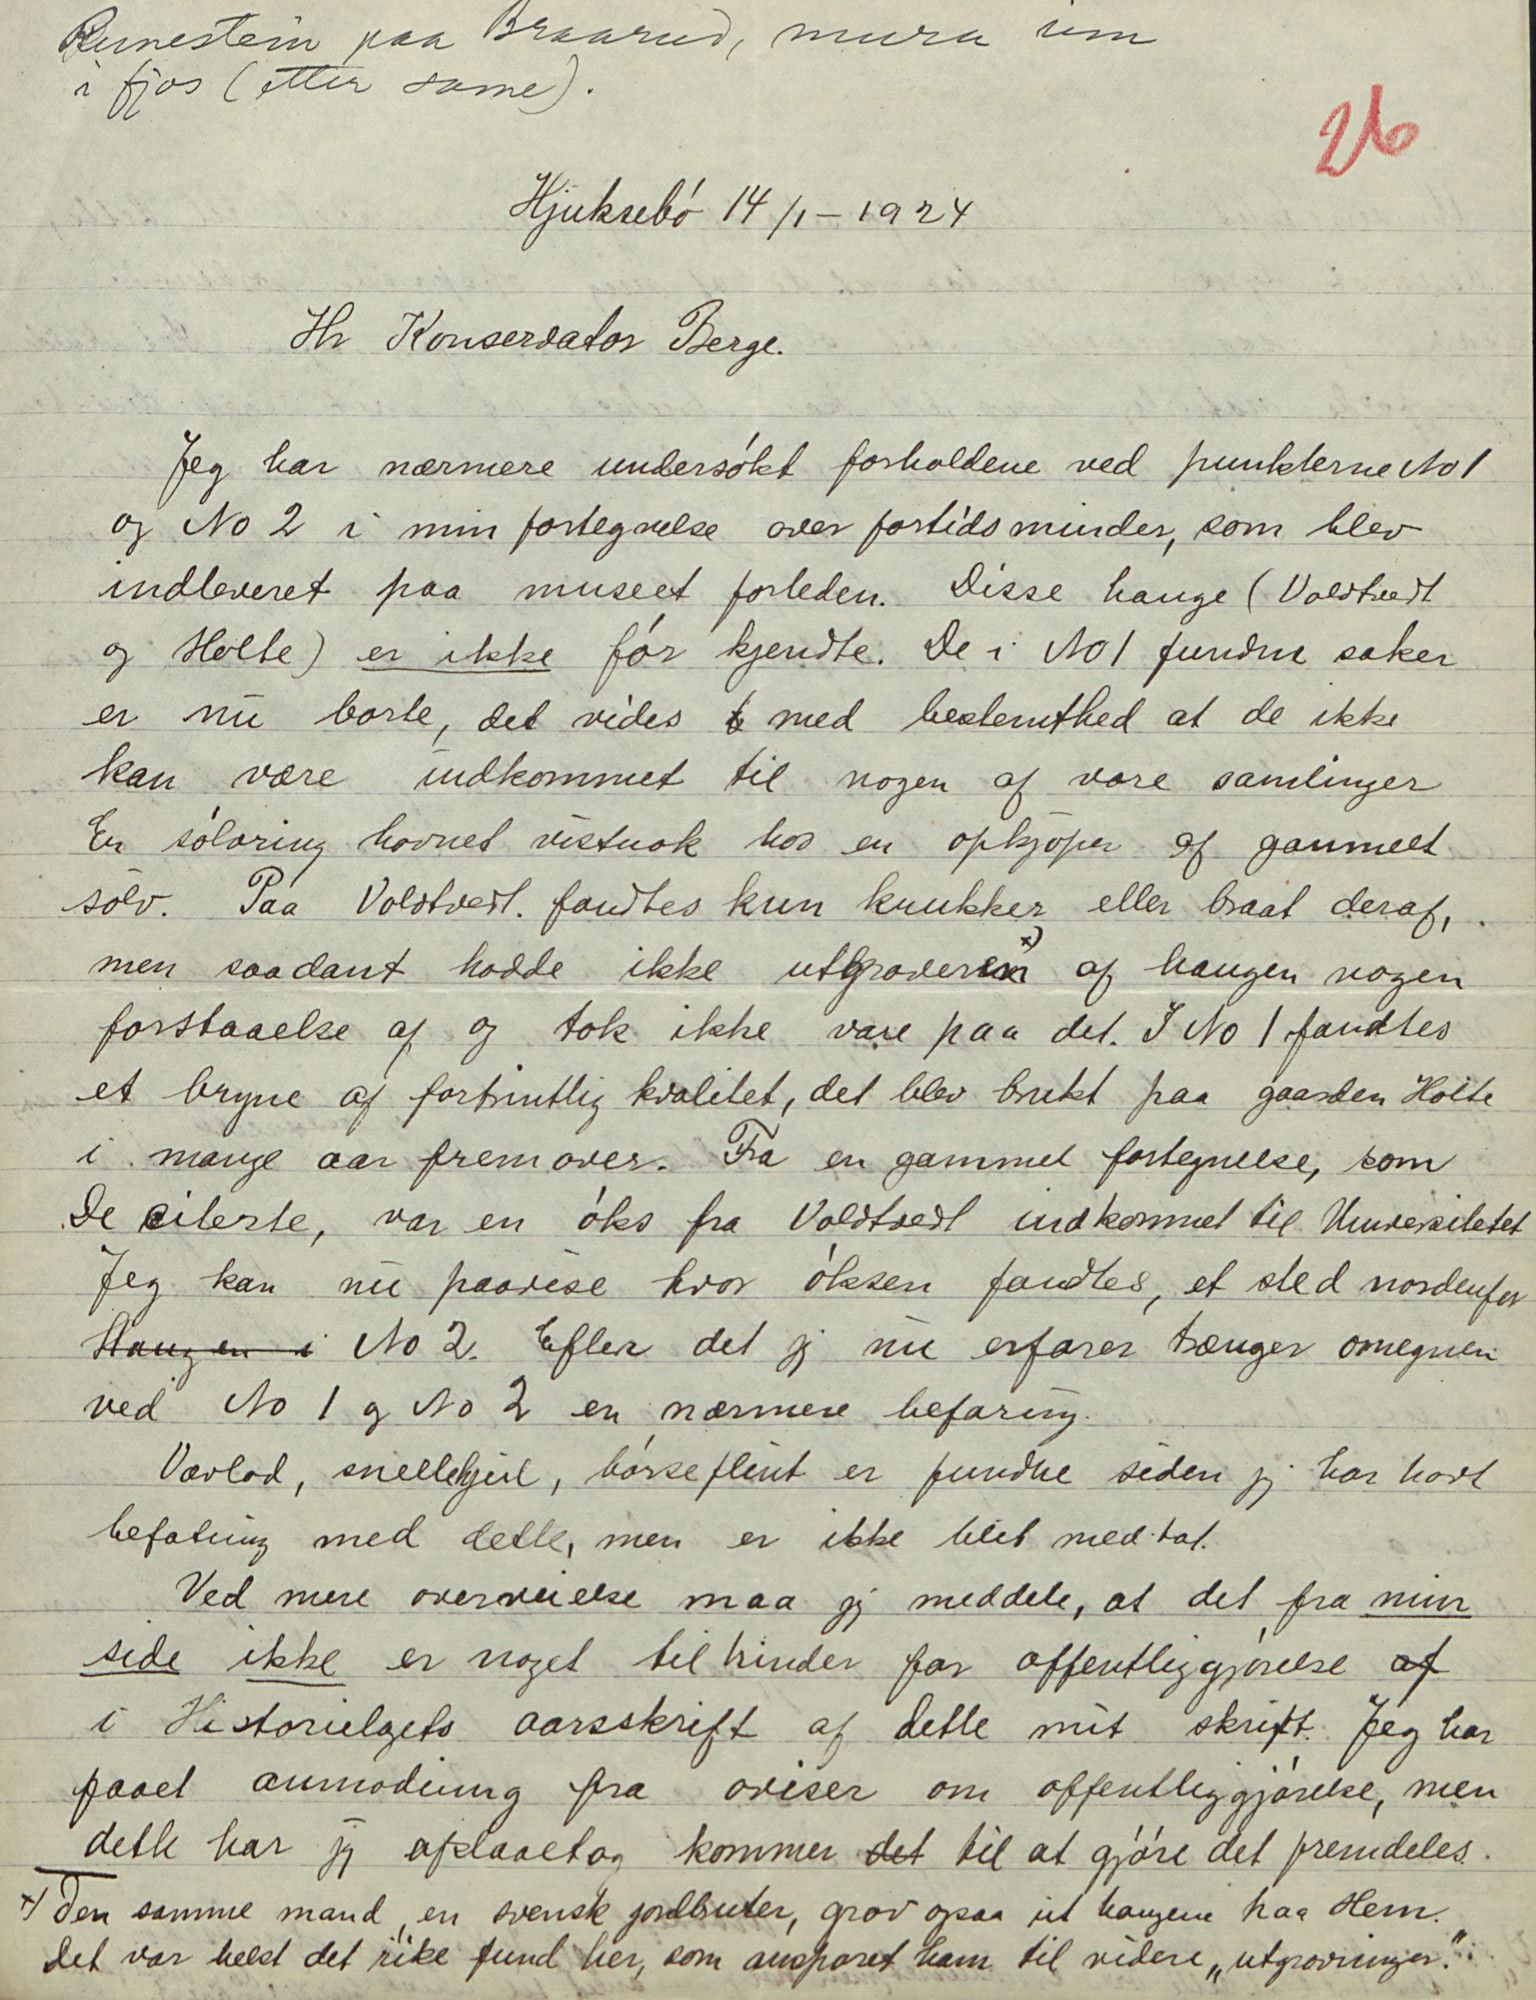 Runestein paa Braarud, mura inn
i fjøs (etter same).
26
Hjuksebó 14/1 - 1924
Hr Konservator Berge.
Jeg har nærmere undersókt forholdene ved punkterne No 1
og No 2 i min fortegnelse over fortidsminder, som blev
indleveret paa museet forleden. Disse hauge (Voldtvedt
og Holte) er ikke fór kjendte. De i No 1 fundne saker
er nu borte, det vides med bestemthed at de ikke
kan være indkommet til nogen af vore samlinger
En sólvring havnet vistnok hos en opkjóper af gammelt
sólv. Paa Voldtvedt. fandtes kun krukker eller braat deraf,
men saadant hadde ikke utgraveren x) af haugen nogen
forstaaelse af og tok ikke vare paa det. I No 1 fandtes
et bryne af fortrintlig kvalitet, det blev brukt paa gaarden Holte
i mange aar fremover. Fra en gammel fortegnelse, som
De citerte, var en óks fra Voldtvedt indkommet til Universitetet
Jeg kan nu paavise hvor óksen fandtes, et sted nordenfor
Haugen i No 2. Efter det jg nu erfarer trænger omegnen
ved No 1 g No 2 en nærmere befaring.
Vævlod, snellehjul, bórseflint er fundne siden jg har havt
befatning med dette, men er ikke blit med-tat.
Ved mere overveielse maa jg meddele, at det fra min
side ikke er noget til hinder for offentliggjórelse af
i Historielagets aarsskrift af dette mit skrift. Jeg har
faaet anmodning fra aviser om offentliggjórelse, men
dette har jg afslaaet og kommer det til at gjóre det fremdeles.
x) Den samme mand, en svensk jordbruter, grov ogsaa ut haugene paa Hem.
Det var helst det rike fund her, som ansporet ham til videre „utgravninger".